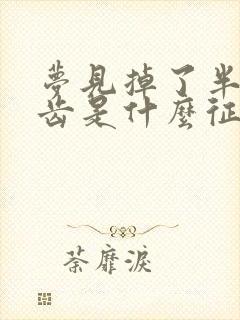 夢見掉了半
齒是什麼征
荼靡淚